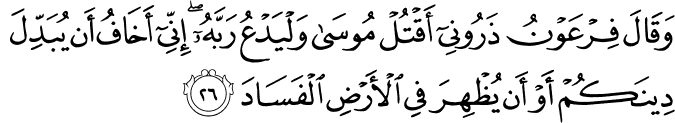 وَقَالَ فِرْعَوْنُ ذَرُونِىٓ أَقْتُلْ مُوسَىٰ وَلْيَدْعُ رَبَّهُۥٓ ۖ إِنِّىٓ أَخَافُ أَن يُبَدِّلَ
دِينَكُمْ أَوْ أَن يُظْهِرَ فِى ٱلْأَرْضِ ٱلْفَسَادَ ٢٦